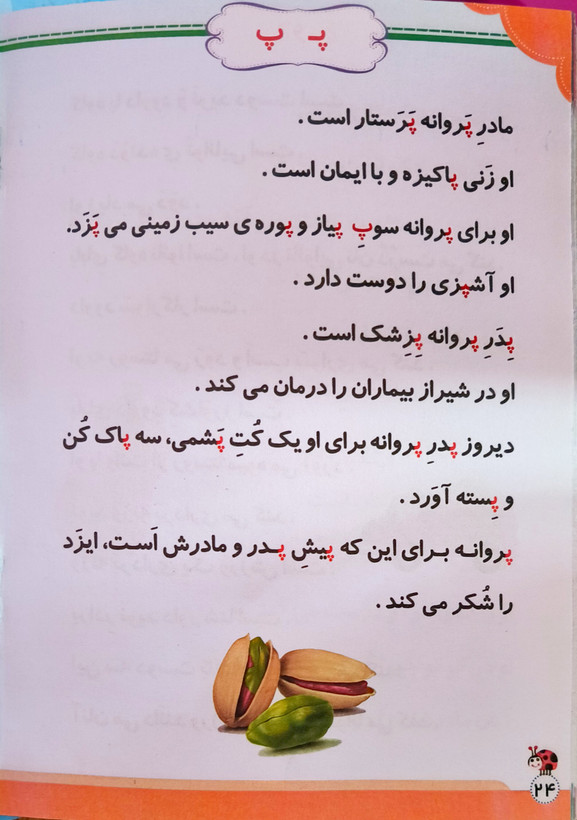 پـ پ
مادرِ پَروانه پَرَستار است .
او زَنی پاکیزه و با ایمان است .
او برای پروانه سوپِ پیاز و پوره ی سیب زمینی می پَزَد.
او آشپزی را دوست دارد .
پِدَرِ پروانه پِزِشک است .
او در شیراز بیماران را درمان می کند .
دیروز پدرِ پروانه برای او یک کُتِ پَشمی، سه پاک کُن
و پِسته آوَرد .
پروانـه بـرای این که پیشِ پـدر و مادرش اَسـت، ایزَد
را شُکر می کند .
۲۴